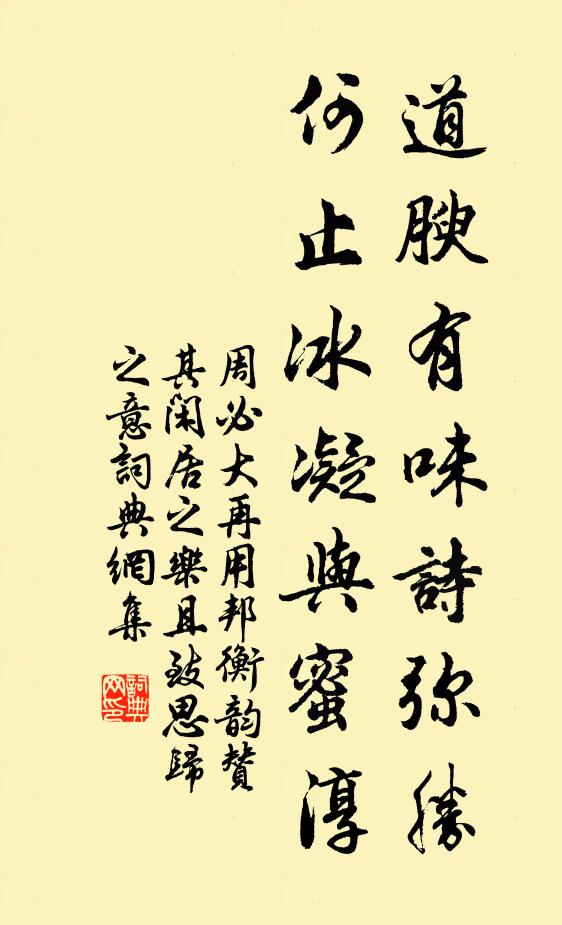 道腴有味詩弥勝
何止冰凝與蜜淳
周必大再用邦衡韵賛
其閑居之樂且致思歸
之意詞典網集
詞典
网印